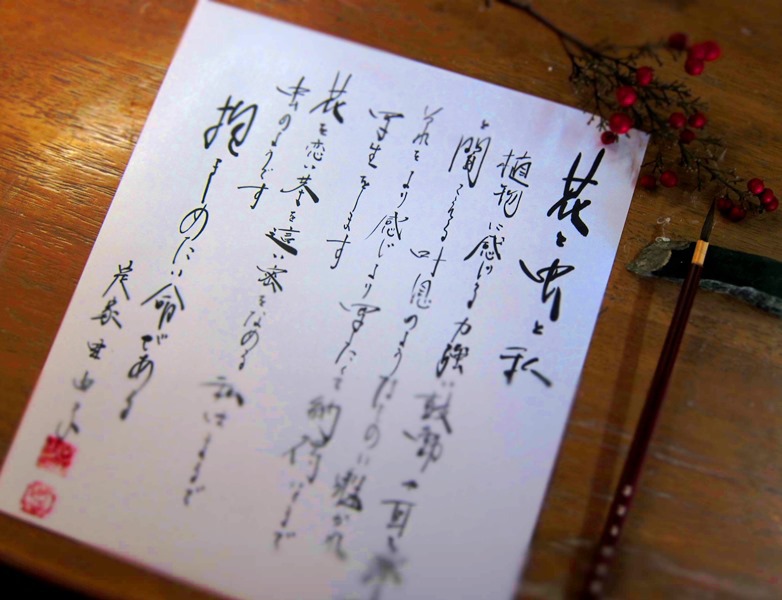 花と虫と私
植物に感じる力強い鼓動や耳を
と聞こえる吐息のようなものに魅かれ
それをより感じより写したくて納得いくまで
写生をします
花を恋い茎を這い蜜をなめる私はまるで
虫のようです
抱きしめたい命である